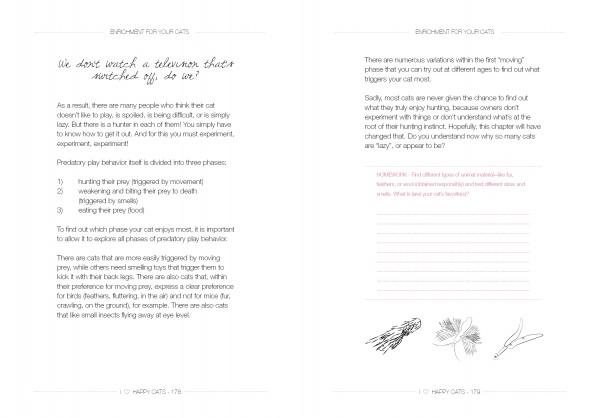 ENRICHMENT FOR YOUR CATS
We don't watch a television that's
switched off, do we?
As a result, there are many people who think their cat
doesn't like to play, is spoiled, is being difficult, or is simply
lazy. But there is a hunter in each of them! You simply have
to know how to get it out. And for this you must experiment,
experiment, experiment!
Predatory play behavior itself is divided into three phases:
1) hunting their prey (triggered by movement)
2) weakening and biting their prey to death
(triggered by smells)
3) eating their prey (food)
To find out which phase your cat enjoys most, it is important
to allow it to explore all phases of predatory play behavior.
There are cats that are more easily triggered by moving
prey, while others need smelling toys that trigger them to
kick it with their back legs. There are also cats that, within
their preference for moving prey, express a clear preference
for birds (feathers, fluttering, in the air) and not for mice (fur,
crawling, on the ground), for example. There are also cats
that like small insects flying away at eye level.
I ♡ HAPPY CATS - 178
ENRICHMENT FOR YOUR CATS
There are numerous variations within the first "moving"
phase that you can try out at different ages to find out what
triggers your cat most.
Sadly, most cats are never given the chance to find out
what they truly enjoy hunting, because owners don't
experiment with things or don't understand what's at the
root of their hunting instinct. Hopefully, this chapter will have
changed that. Do you understand now why so many cats
are "lazy", or appear to be?
HOMEWORK - Find different types of animal material–like fur,
feathers, or wool (obtained responsibly) and test different sizes and
smells. What is (are) your cat's favorite(s)?
I ♡ HAPPY CATS - 179